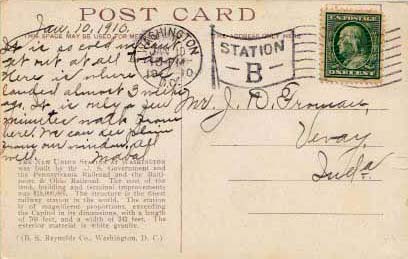 POST CARD
Jan, 10, 1910.
THIS SPACE MAY BE USED FOR MES
ADDRESS ONLY
WASHINGTON
STATION
B
U.S. POSTAGE
ONE CENT
It is so cold we
get out at all
Here is where
landed almost 3 weeks
ago. It is only a few
minutes walk from
here. We can see plain
from our window, all
well. Mabel
Mr. J. D.
Vevay,
Inda.
THE NEW UNION STATION AT WASHINGTON
was built by the U. S. Government and
the Pennsylvania Railroad and the Balti-
more & Ohio Railroad. The cost of the
land, building and terminal improvements
was The structure is the finest
railway station in the world. The station
is of magnificent proportions, exceeding
the Capitol in its dimensions, with a length
of 760 feet, and a width of 343 feet. The
exterior material is white granite.
(B. S. Reynolds Co., Washington, D. C.)